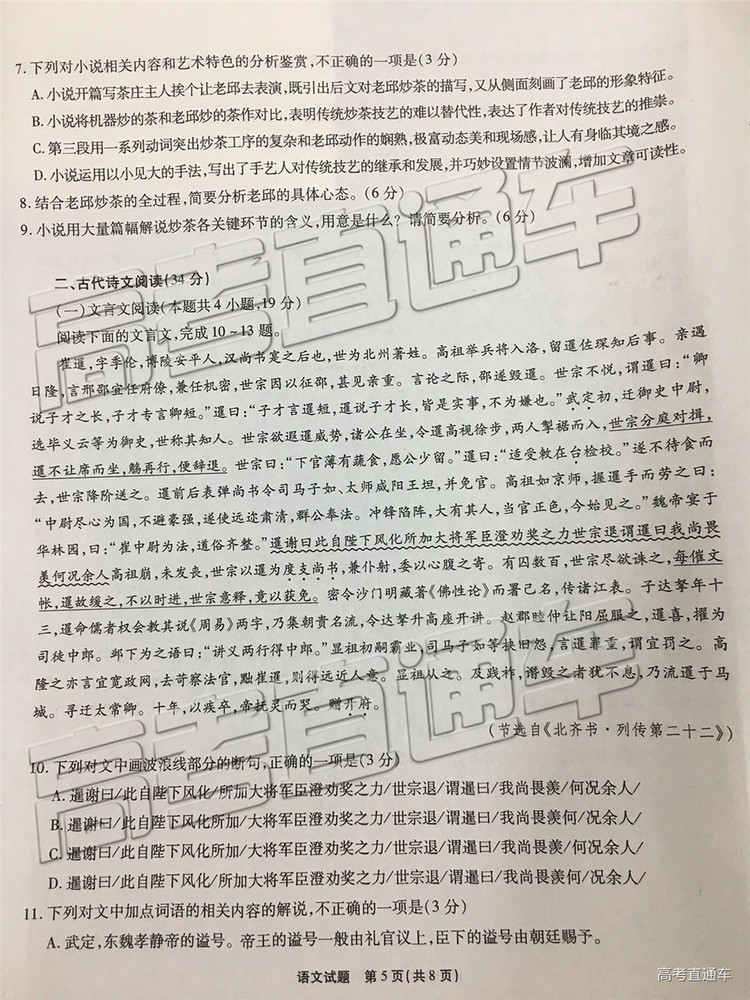 7. 下列对小说相关内容和艺术特色的分析鉴赏,不正确的一项是(3 分)
A. 小说开篇写茶庄主人挨个让老邱去表演,既引出后文对老邱炒茶的描写,又从侧面刻画了老邱的形象特征。
B. 小说将机器炒的茶和老邱炒的茶作对比,表明传统炒茶技艺的难以替代性,表达了作者对传统技艺的推崇。
C. 第三段用一系列动词突出炒茶工序的复杂和老邱动作的娴熟,极富动态美和现场感,让人有身临其境之感。
D. 小说运用以小见大的手法,写出了手艺人对传统技艺的继承和发展,并巧妙设置情节波澜,增加文章可读性。
8. 结合老邱炒茶的全过程,简要分析老邱的具体心态。(6 分)
9. 小说用大量篇幅解说炒茶各关键环节的含义,用意是什么? 请简要分析。(6 分)
二、古代诗文阅读(34 分)
(一)文言文阅读(本题共 4 小题,19 分)
阅读下面的文言文,完成 10~13 题。
崔暹,字季伦,博陵安平人,汉尚书寔之后也,世为北州著姓。高祖举兵将入洛,留暹佐琛知后事。亲遇
日隆,言邢邵宜任府僚,兼任机密,世宗因以征邵,甚见亲重。言论之际,邵遂毁暹。世宗不悦,谓暹曰:“卿
说子才之长,子才专言卿短。”暹曰:“子才言暹短,暹说子才长,皆是实事,不为嫌也。”武定初,迁御史中尉,
选毕义云等为御史,世称其知人。世宗欲遐暹威势,诸公在坐,令暹高视徐步,两人掣裾而入,世宗分庭对揖,
暹不让席而坐,觞再行,便辞退。世宗曰:“下官薄有蔬食,愿公少留。”暹曰:“适受敕在台检校。”遂不待食而
去,世宗降阶送之。暹前后表弹尚书令司马子如、太师咸阳王坦,并免官。高祖如京师,握暹手而劳之曰:
“中尉尽心为国,不避豪强,遂使远迩肃清,群公奉法。冲锋陷阵,大有其人,当官正色,今始见之。”魏帝宴于
华林园,曰:“崔中尉为法,道俗齐整。”暹谢曰此自陛下风化所加大将军臣澄劝奖之力世宗退谓暹曰我尚畏
羡何况余人高祖崩,未发丧,世宗以暹为度支尚书,兼仆射,委以心腹之寄。有囚数百,世宗尽欲诛之,每催文
帐,暹故缓之,不以时进,世宗意释,竟以获免。密令沙门明藏著《佛性论》而署己名,传诸江表。子达拏年十
三,暹命儒者权会教其说《周易》两字,乃集朝贵名流,令达拏升高座开讲。赵郡睦仲让阳屈服之,暹喜,擢为
司徒中郎。邺下为之语曰:“讲义两行得中郎。”显祖初嗣霸业,司马子如等挟旧怨,言暹罪重,谓宜罚之。高
隆之亦言宜宽政网,去苛察法官,黜崔暹,则得远近人意。显祖从之。及践祚,谮毁之者犹不息,乃流暹于马
城。寻迁太常卿。十年,以疾卒,帝抚灵而哭。赠开府。
(节选自《北齐书·列传第二十二》)
10. 下列对文中画波浪线部分的断句,正确的一项是(3 分)
A. 暹谢曰/此自陛下风化/所加大将军臣澄劝奖之力/世宗退/谓暹曰/我尚畏羡/何况余人/
B. 暹谢曰/此自陛下风化所加/大将军臣澄劝奖之力/世宗退/谓暹曰/我尚畏羡何/况余人/
C. 暹谢曰/此自陛下风化/所加大将军臣澄劝奖之力/世宗退/谓暹曰/我尚畏羡何/况余人/
D. 暹谢曰/此自陛下风化所加/大将军臣澄劝奖之力/世宗退/谓暹曰/我尚畏羡/何况余人/
11. 下列对文中加点词语的相关内容的解说,不正确的一项是(3 分)
A. 武定,东魏孝静帝的谥号。帝王的谥号一般由礼官议上,臣下的谥号由朝廷赐予。
语文试题 第 5 页(共 8 页)
高考直通车
高考直通车
高考直通车